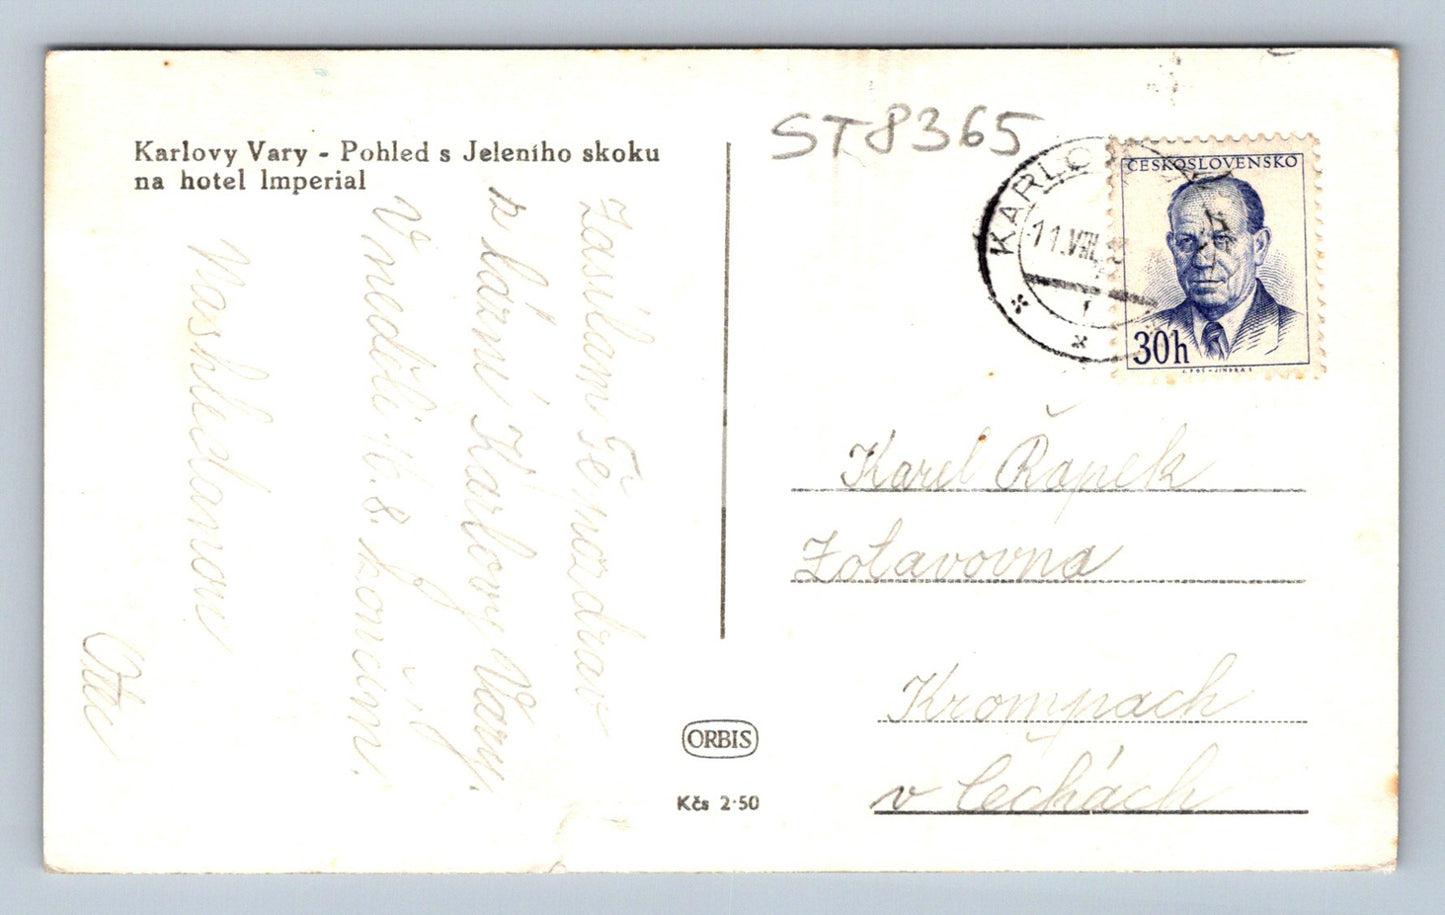 Karlovy Vary - Pohled s Jeleního skoku
na hotel Imperial
Zasílám Tě nazdrav
z lázní Karlovy Vary.
V neděli 16. 8. končím.
Nashledanou
ST8365
KARLO
11.VIII.
ČESKOSLOVENSKO
30h
Karel Řapek
Zotavovna
Krompach
v Čechách
ORBIS
Kčs 2·50